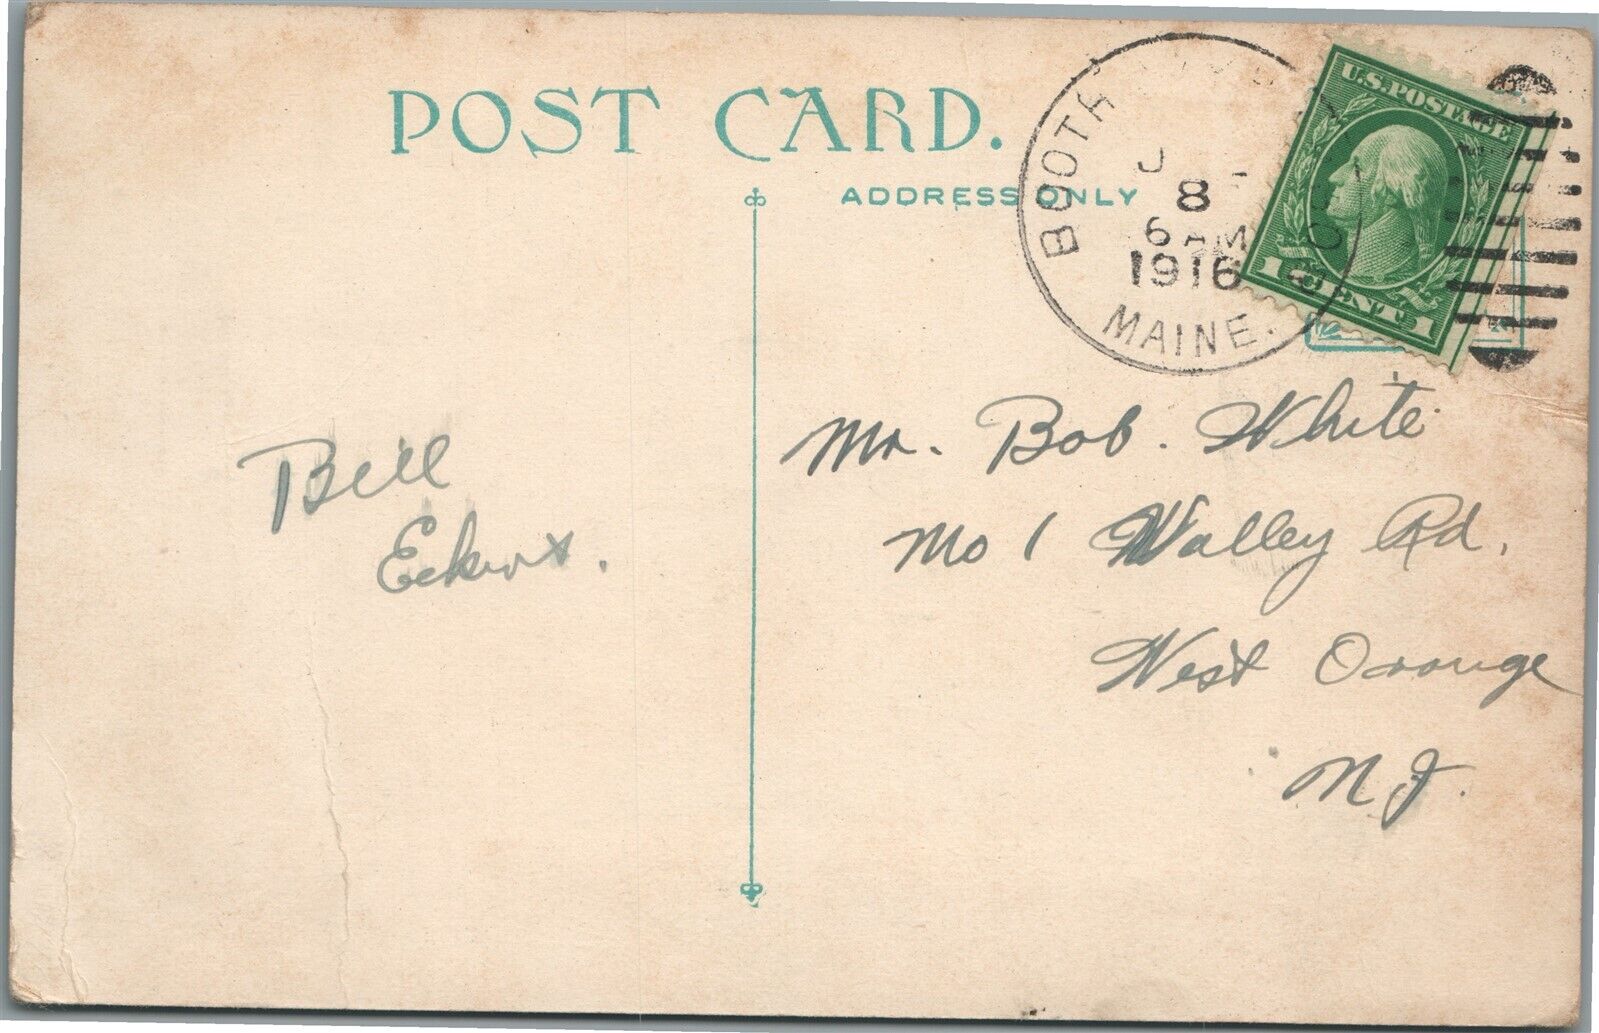 POST CARD.
ADDRESS ONLY
BOOTH
8
6 AM
1916
MAINE.
U.S. POSTAGE
1 CENT 1
Mr. Bob. White
No 1 Walley Rd,
West Orange
N J.
Bill
Eckert.